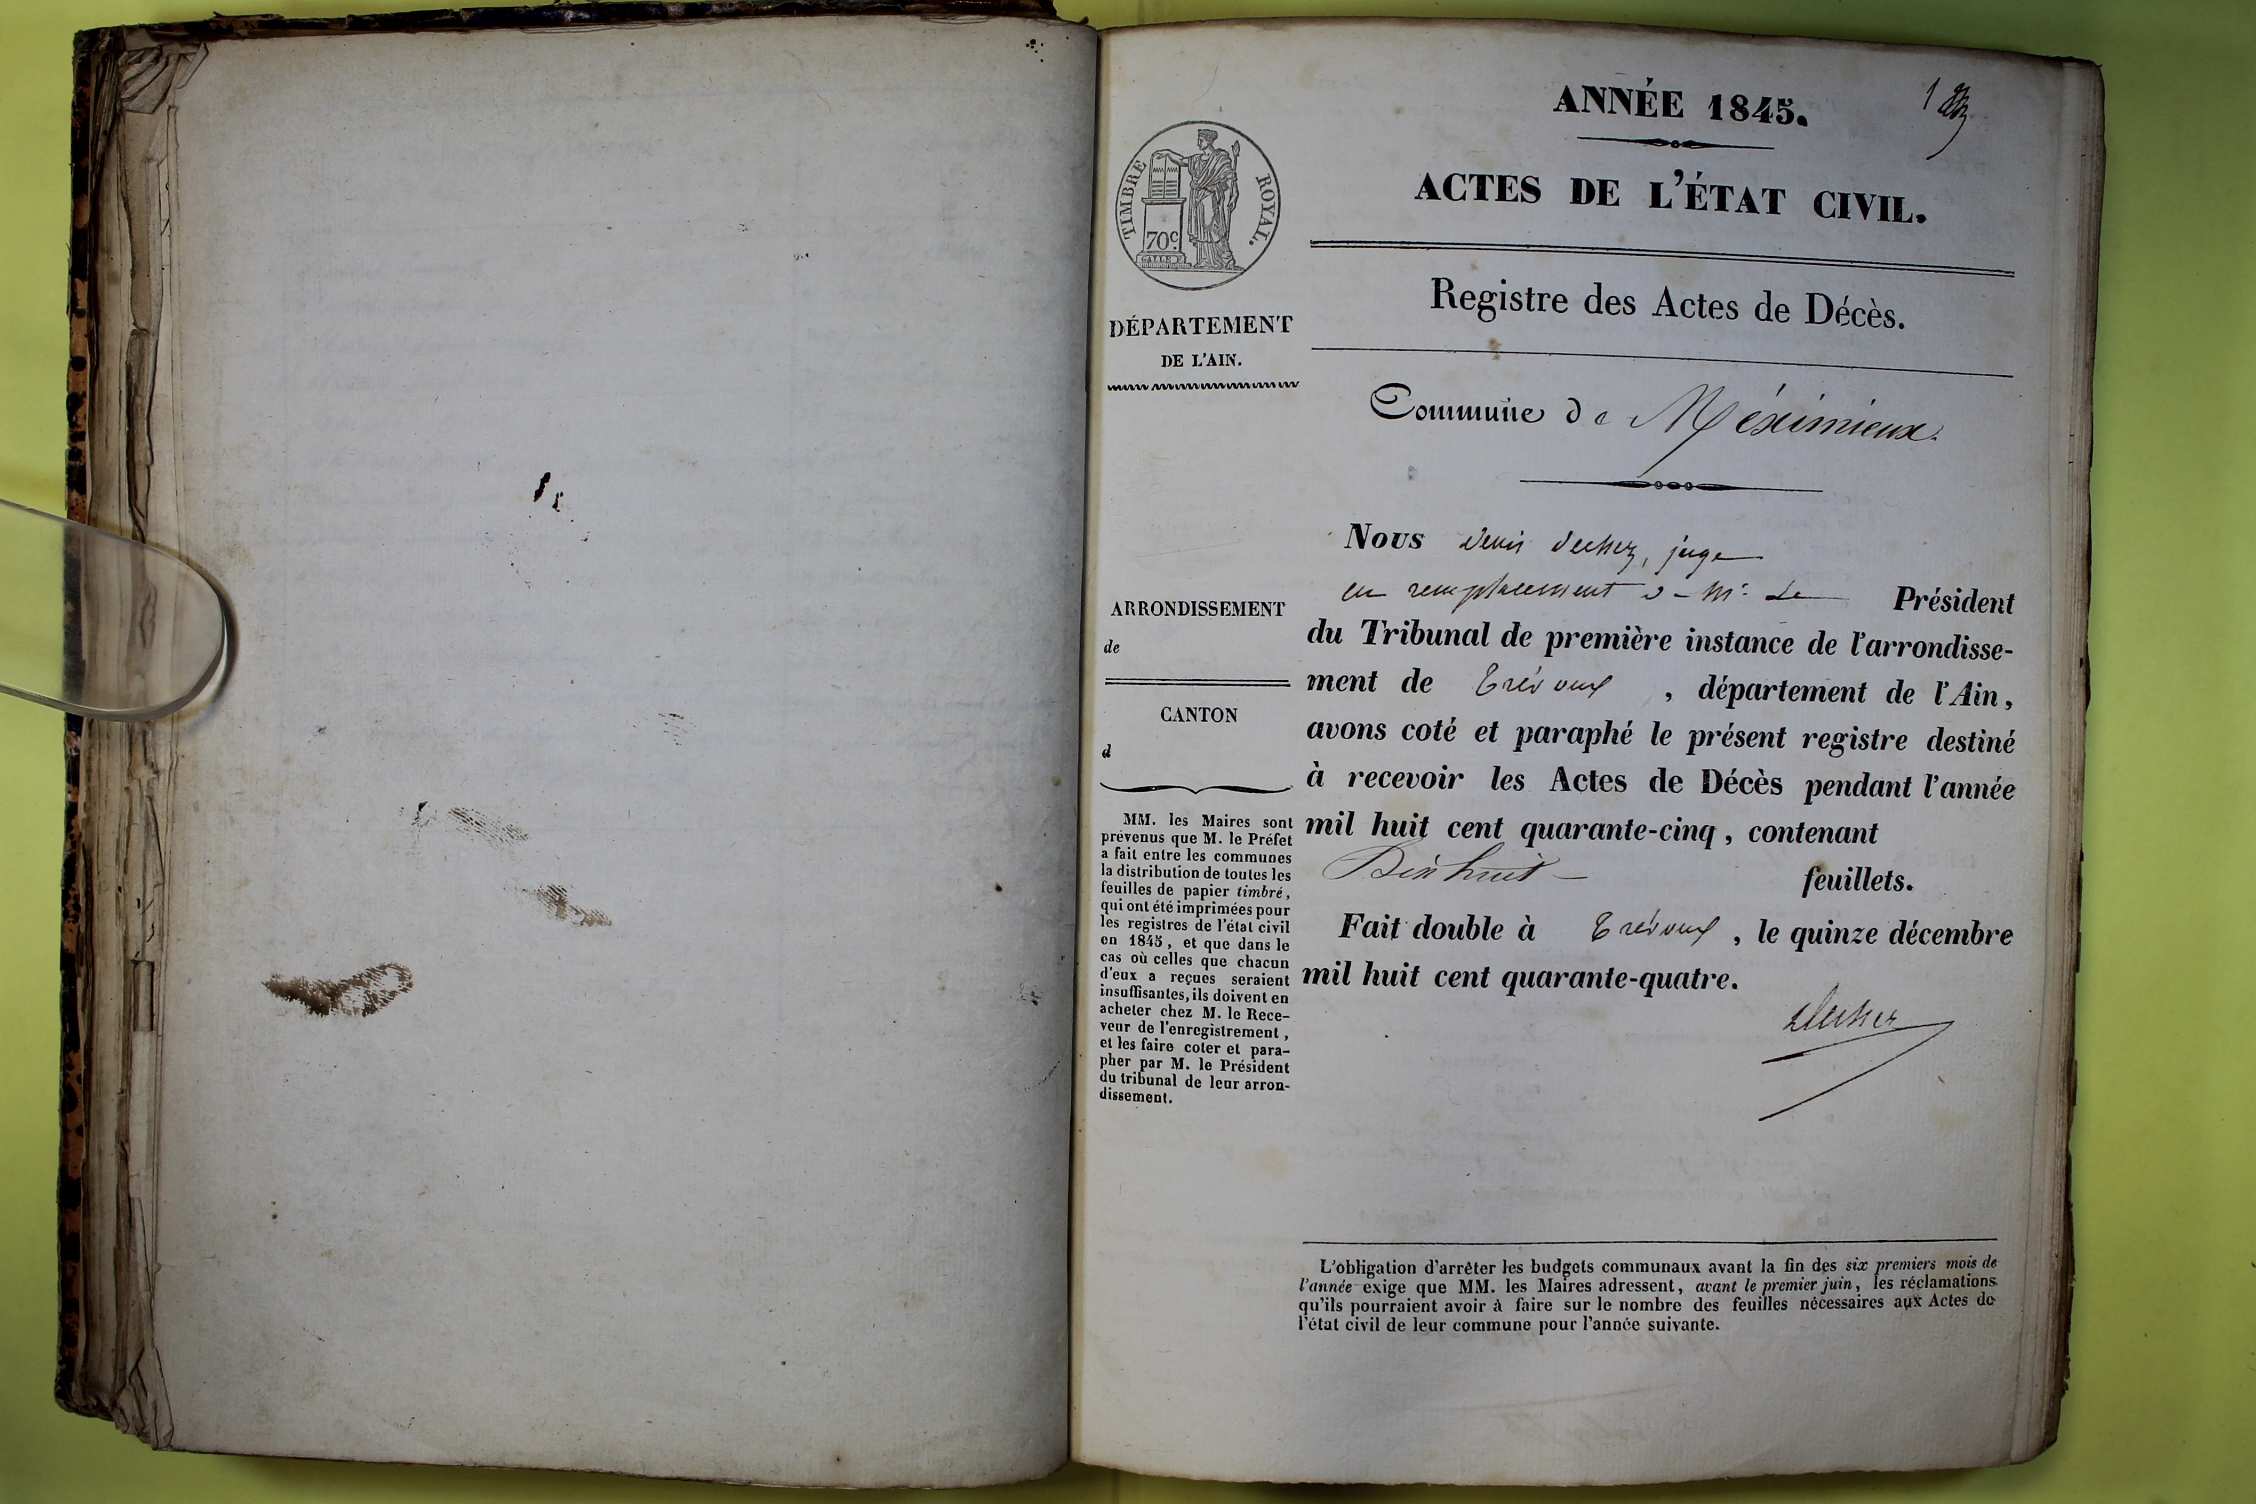 ANNÉE 1845.
1
ACTES DE L'ÉTAT CIVIL.
TIMBRE ROYAL.
70c
Registre des Actes de Décès.
DÉPARTEMENT
DE L'AIN.
Commune de Méximieux.
ARRONDISSEMENT
de
CANTON
d
MM. les Maires sont
prévenus que M. le Préfet
a fait entre les communes
la distribution de toutes les
feuilles de papier timbré,
qui ont été imprimées pour
les registres de l'état civil
en 1845, et que dans le
cas où celles que chacun
d'eux a reçues seraient
insuffisantes, ils doivent en
acheter chez M. le Rece-
veur de l'enregistrement,
et les faire coter et para-
pher par M. le Président
du tribunal de leur arron-
dissement.
Nous Denis juge
en remplacement de Mr. Le Président
du Tribunal de première instance de l'arrondisse-
ment de Trévoux, département de l'Ain,
avons coté et paraphé le présent registre destiné
à recevoir les Actes de Décès pendant l'année
mil huit cent quarante-cinq, contenant
Dix huit feuillets.
Fait double à Trévoux, le quinze décembre
mil huit cent quarante-quatre.
L'obligation d'arrêter les budgets communaux avant la fin des six premiers mois de
l'année exige que MM. les Maires adressent, avant le premier juin, les réclamations
qu'ils pourraient avoir à faire sur le nombre des feuilles nécessaires aux Actes de
l'état civil de leur commune pour l'année suivante.